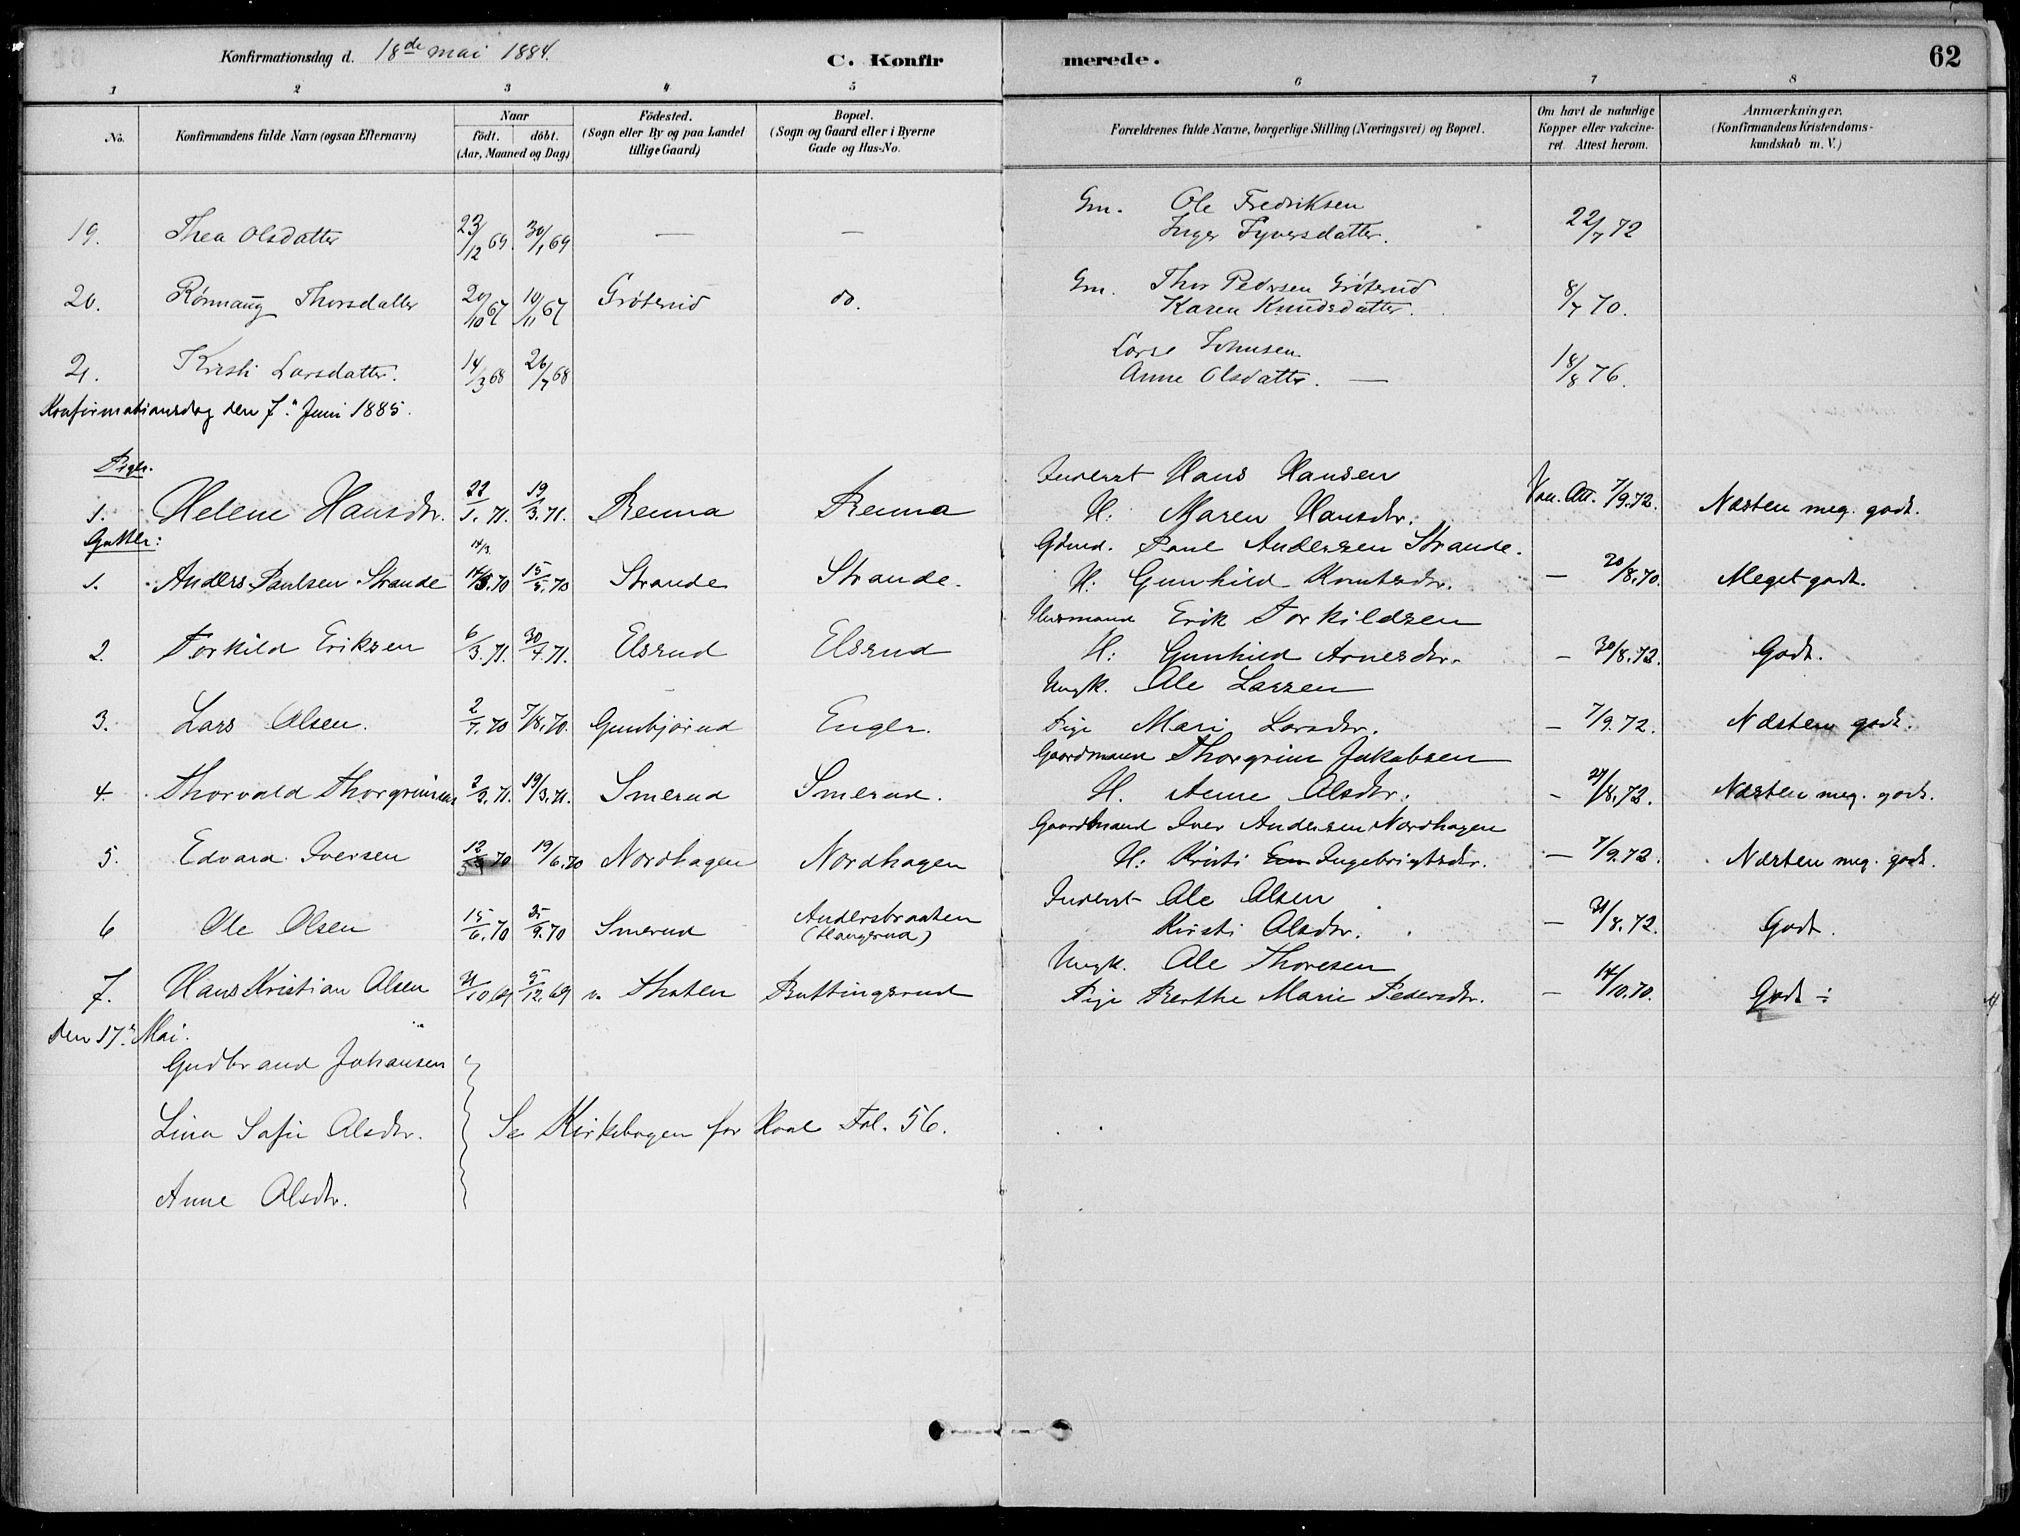 Konfirmationsdag d. 18de mai 1884. C. Konfirmerede. 62
1 2 3 4 5 6 7 8
No. Konfirmandens fulde Navn (ogsaa Efternavn) Naar födt. döbt. (Aar, Maaned og Dag) Födested. (Sogn eller By og paa Landet tillige Gaard) Bopæl. (Sogn og Gaard eller i Byerne Gade og Hus-No. Forældrenes fulde Navne, borgerlige Stilling (Næringsvei) og Bopæl. Om havt de naturlige Kopper eller vakcineret. Attest herom. Anmærkninger. (Konfirmandens Kristendomskundskab m. V.)
Gm. Ole Fredriksen
19. Thea Olsdatter 23/12 69. 30/1 69 — — Inger Syversdatter. 22/7 72
Gm. Thor Pedersen Gröterud
20. Rönnaug Thorsdatter 20/10 67 10/11 67 Gröterud do. Karen Knudsdatter. 8/7 70.
Lars Johnsen
21. Kristi Larsdatter. 14/3 68 26/7 68 Anne Olsdatter. — 18/8 76.
Konfirmationsdag den 7. Juni 1885.
Piger.
Inderst Hans Hansen
1. Helene Hansdtr. 22/1.71. 19/3.71. Renna Renna H: Maren Hansdtr. Vac. Att. 7/9.72. Næsten meg. godt.
Gutter:
14/3.
Gbmd. Paul Andersen Strande.
1. Anders Paulsen Strande 14/3.70 15/5.70 Strande Strande. H: Gunhild Knutsdtr. — 20/8.70. Meget godt.
Husmand Erik Torkildsen
2. Torkild Eriksen 6/3.71. 30/4.71. Elsrud Elsrud H: Gunhild Arnesdtr. — 30/8.72. Godt.
Ungk. Ole Larsen
3. Lars Olsen. 2/7.70 7/8.70. Gunbjørud Enger. Pige Mari Larsdtr. — 7/9.72. Næsten godt.
Gaardmand Thorgrim Jakobsen
4. Thorvald Thorgrimsen 2/2.71. 19/3.71. Smerud Smerud. H. Anne Olsdtr. — 27/8.72. Næsten meg. godt.
Gaardmand Iver Andersen Nordhagen
5. Edvard Iversen 12/5 70 19/6.70 Nordhagen Nordhagen H: Kristi Ingebrigtsdtr. — 7/9.72. Næsten meg. godt.
Inderst Ole Olsen
6 Ole Olsen 15/6.70 25/9.70 Smerud Andersbraaten (Haugerud) Kirsti Olsdtr. — 31/8.72. Godt.
Ungk. Ole Thoresen
7. Hans Kristian Olsen 31/10.69 5/12.69 v. Thoten Buttingsrud Pige Berthe Marie Pedersdtr. — 14/10.70. Godt ÷
den 17. Mai.
Gudbrand Johansen
Lina Sofie Olsdtr. Se Kirkebogen for Hval Fol. 56.
Anne Olsdtr.